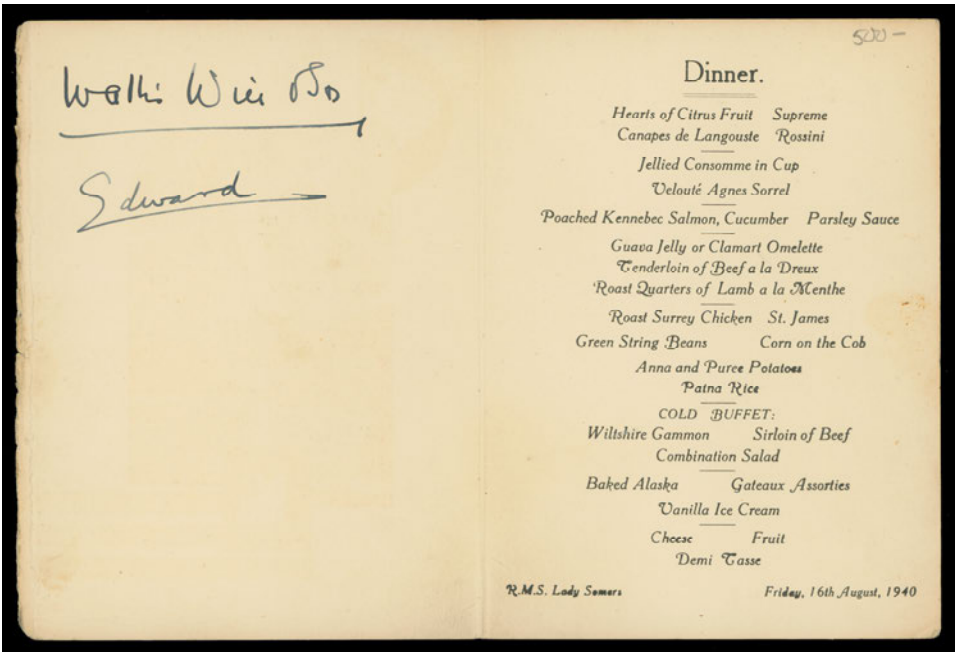 Wallis Windsor
Edward
500 —
Dinner.
Hearts of Citrus Fruit Supreme
Canapes de Langouste Rossini
Jellied Consomme in Cup
Velouté Agnes Sorrel
Poached Kennebec Salmon, Cucumber Parsley Sauce
Guava Jelly or Clamart Omelette
Tenderloin of Beef a la Dreux
Roast Quarters of Lamb a la Menthe
Roast Surrey Chicken St. James
Green String Beans Corn on the Cob
Anna and Puree Potatoes
Patna Rice
COLD BUFFET:
Wiltshire Gammon Sirloin of Beef
Combination Salad
Baked Alaska Gateaux Assorties
Vanilla Ice Cream
Cheese Fruit
Demi Tasse
R.M.S. Lady Somers Friday, 16th August, 1940